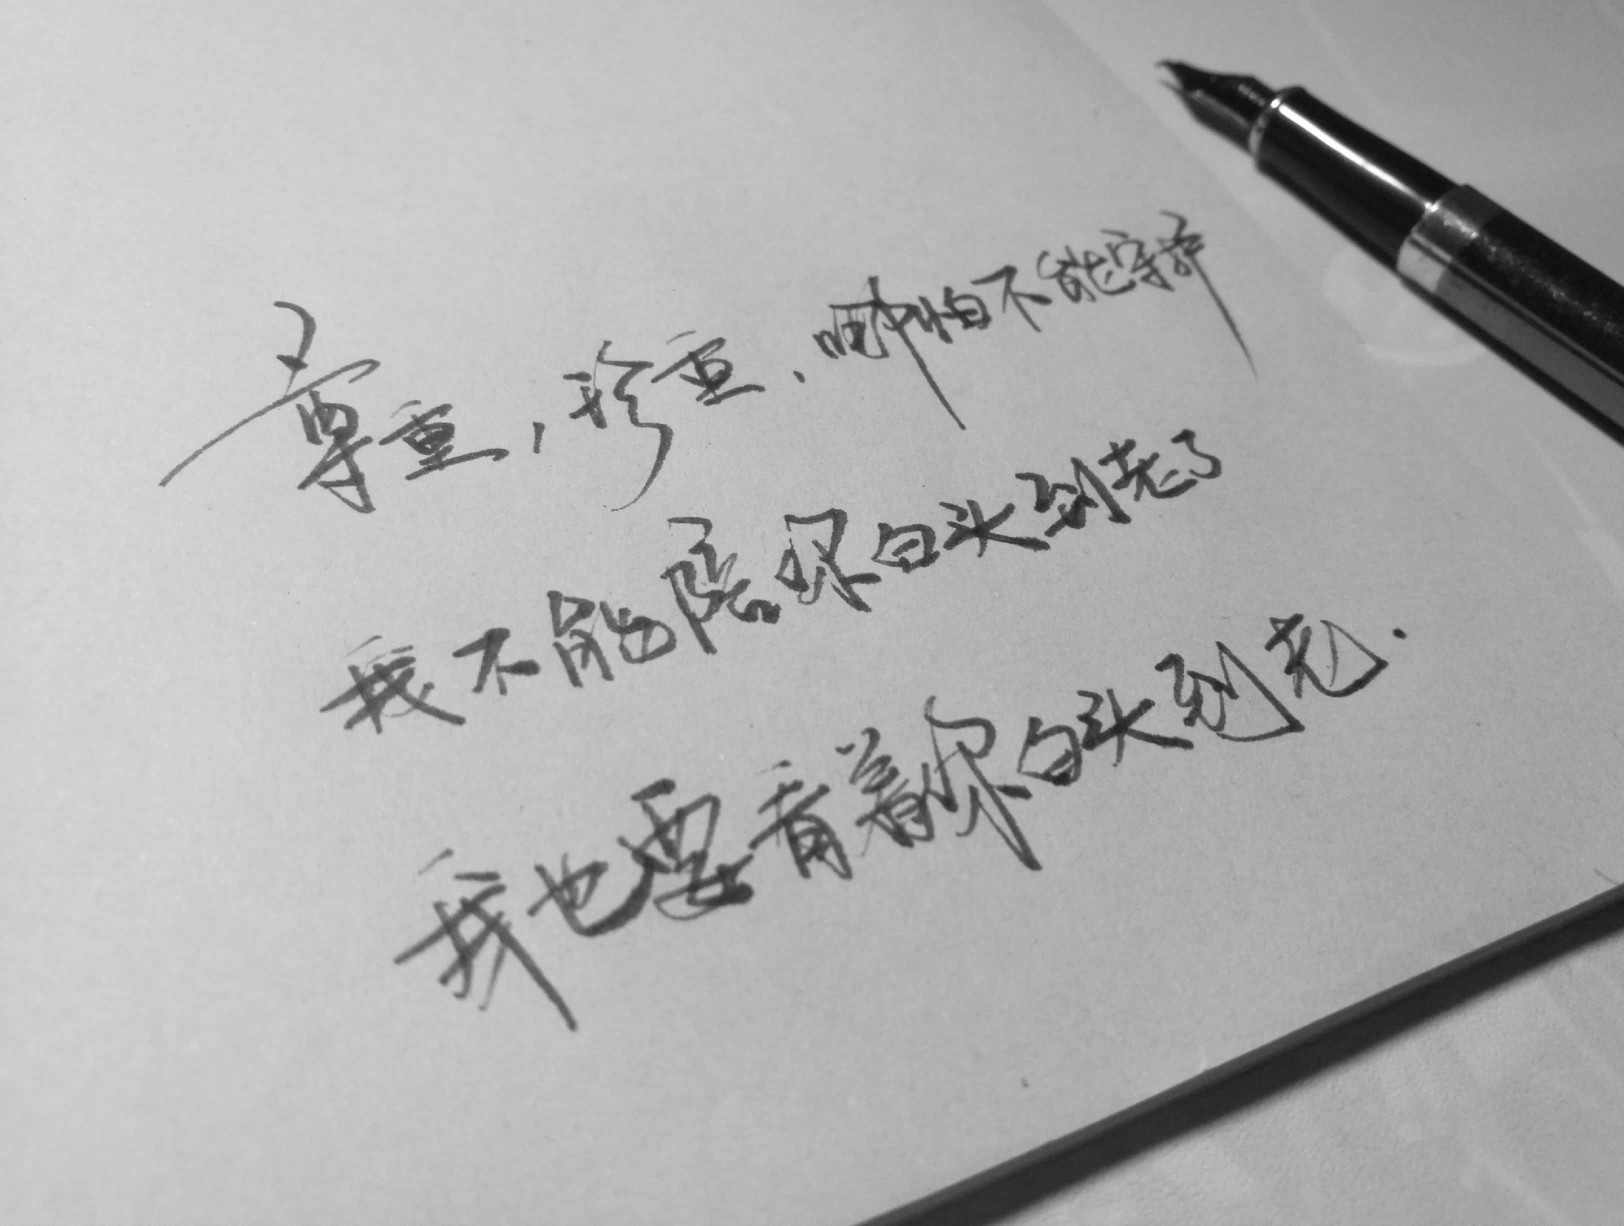 尊重，珍重、哪怕不能守护
我不能陪你白头到老了
我也要看着你白头到老.